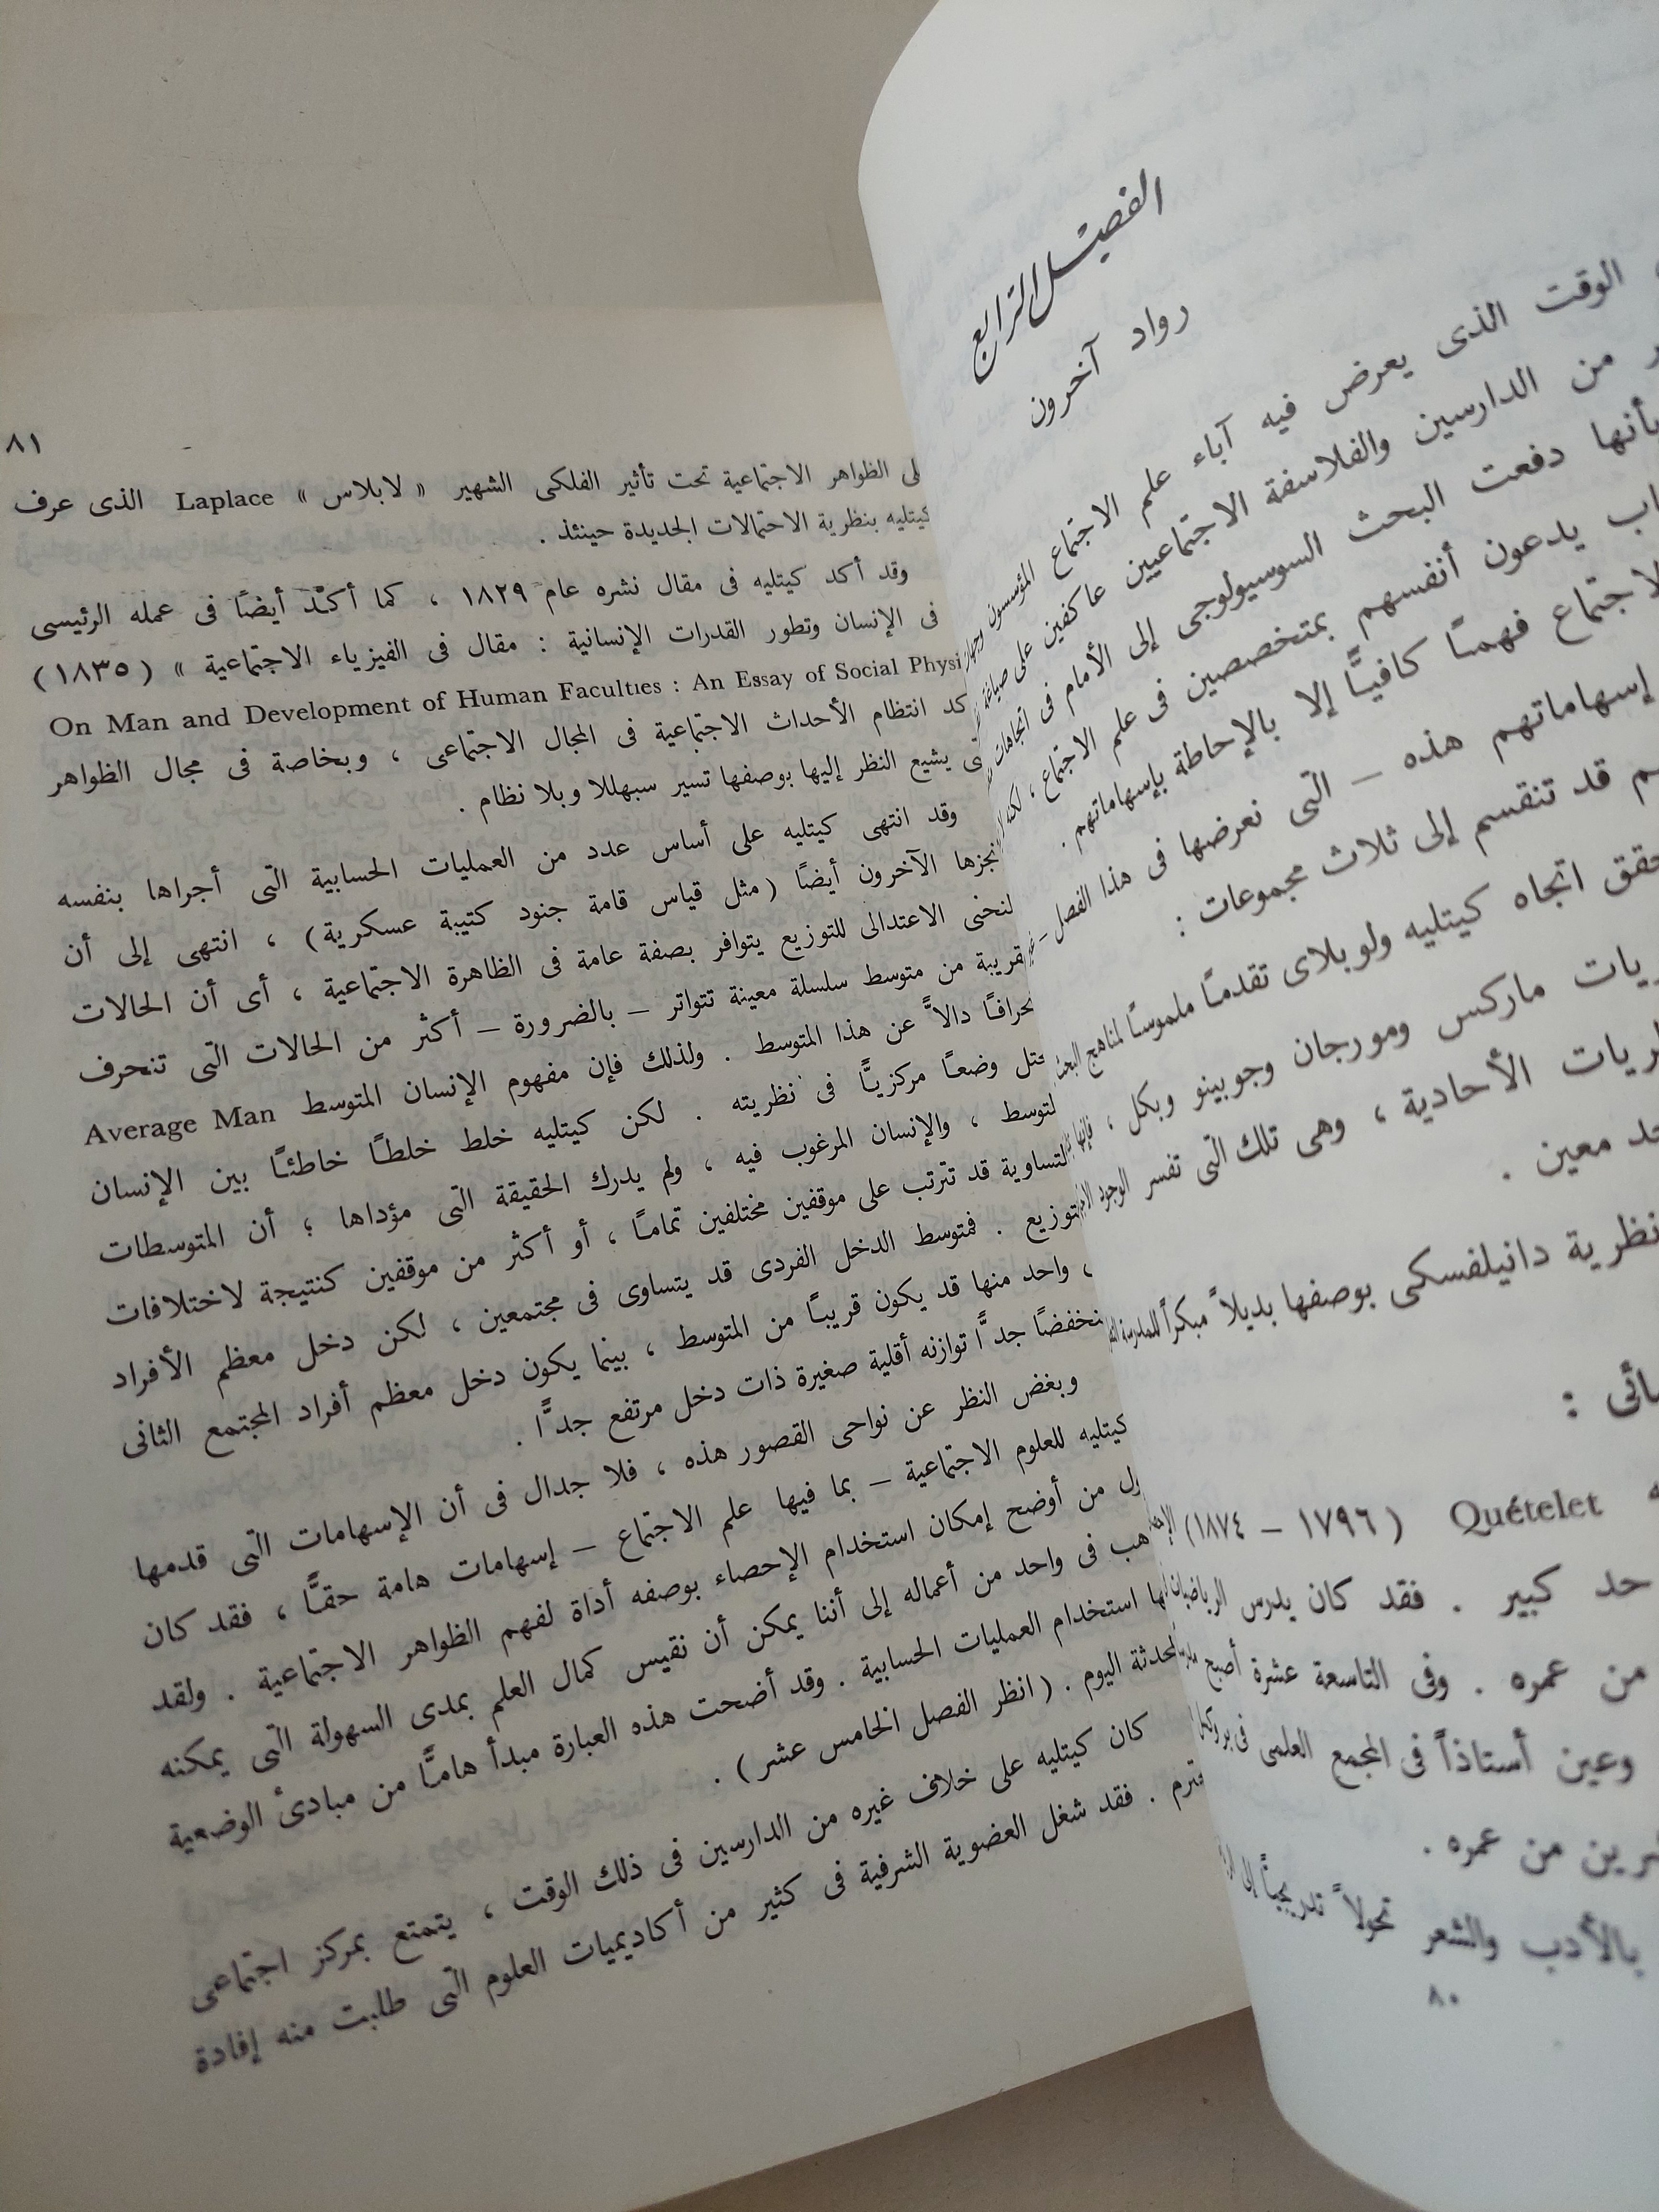 الفصل الرابع
رواد آخرون
الوقت الذى يعرض فيه آباء علم الاجتماع المؤسسون
من الدارسين والفلاسفة الاجتماعيين عاكفين على صياغة
بأنها دفعت البحث السوسيولوجى إلى الأمام فى اتجاهات
يدعون أنفسهم بمتخصصين فى علم الاجتماع ، لكنه
الاجتماع فهمًا كافيًّا إلا بالإحاطة بإسهاماتهم .
إسهاماتهم هذه – التى نعرضها فى هذا الفصل –
قد تنقسم إلى ثلاث مجموعات :
اتجاه كيتليه ولوبلاى تقدمًا ملموسًا لمناهج البحث
ماركس ومورجان وجوبينو وبكل ، فإنها
الأحادية ، وهى تلك التى تفسر الوجود
معين .
نظرية دانيلفسكى بوصفها بديلاً مبكراً للمدرسة
:
Quételet ( ١٧٩٦ – ١٨٧٤ )
حد كبير . فقد كان يدرس الرياضيات
من عمره . وفى التاسعة عشرة أصبح
وعين أستاذاً فى المجمع العلمى فى بروكسل
من عمره .
بالأدب والشعر تحولاً تدريجيًّا إلى
٨٠
٨١
الظواهر الاجتماعية تحت تأثير الفلكى الشهير « لابلاس » Laplace الذى عرف
كيتليه بنظرية الاحتمالات الجديدة حينئذ .
وقد أكد كيتليه فى مقال نشره عام ١٨٢٩ ، كما أكـّد أيضًا فى عمله الرئيسى
فى الإنسان وتطور القدرات الإنسانية : مقال فى الفيزياء الاجتماعية » ( ١٨٣٥ )
On Man and Development of Human Faculties : An Essay of Social Physi
كد انتظام الأحداث الاجتماعية فى المجال الاجتماعى ، وبخاصة فى مجال الظواهر
تى يشيع النظر إليها بوصفها تسير سبهللا وبلا نظام .
وقد انتهى كيتليه على أساس عدد من العمليات الحسابية التى أجراها بنفسه
نجزها الآخرون أيضًا ( مثل قياس قامة جنود كتيبة عسكرية ) ، انتهى إلى أن
لنحنى الاعتدالى للتوزيع يتوافر بصفة عامة فى الظاهرة الاجتماعية ، أى أن الحالات
قريبة من متوسط سلسلة معينة تتواتر – بالضرورة – أكثر من الحالات التى تنحرف
حرافًا دالاًّ عن هذا المتوسط . ولذلك فإن مفهوم الإنسان المتوسط Average Man
حتل وضعًا مركزيًّا فى نظريته . لكن كيتليه خلط خلطًا خاطئًا بين الإنسان
لتوسط ، والإنسان المرغوب فيه ، ولم يدرك الحقيقة التى مؤداها ؛ أن المتوسطات
لتساوية قد تترتب على موقفين مختلفين تمامًا ، أو أكثر من موقفين كنتيجة لاختلافات
توزيع . فمتوسط الدخل الفردى قد يتساوى فى مجتمعين ، لكن دخل معظم الأفراد
، واحد منها قد يكون قريبًا من المتوسط ، بينما يكون دخل معظم أفراد المجتمع الثانى
نخفضًا جدًّا توازنه أقلية صغيرة ذات دخل مرتفع جدًّا .
وبغض النظر عن نواحى القصور هذه ، فلا جدال فى أن الإسهامات التى قدمها
كيتليه للعلوم الاجتماعية – بما فيها علم الاجتماع – إسهامات هامة حقًّا ، فقد كان
ول من أوضح إمكان استخدام الإحصاء بوصفه أداة لفهم الظواهر الاجتماعية . ولقد
هب فى واحد من أعماله إلى أننا يمكن أن نقيس كمال العلم بمدى السهولة التى يمكنه
بها استخدام العمليات الحسابية . وقد أضحت هذه العبارة مبدأ هامًّا من مبادئ الوضعية
لمحدثة اليوم . ( انظر الفصل الخامس عشر ) .
كان كيتليه على خلاف غيره من الدارسين فى ذلك الوقت ، يتمتع بمركز اجتماعى
ترم . فقد شغل العضوية الشرفية فى كثير من أكاديميات العلوم التى طلبت منه إفادة